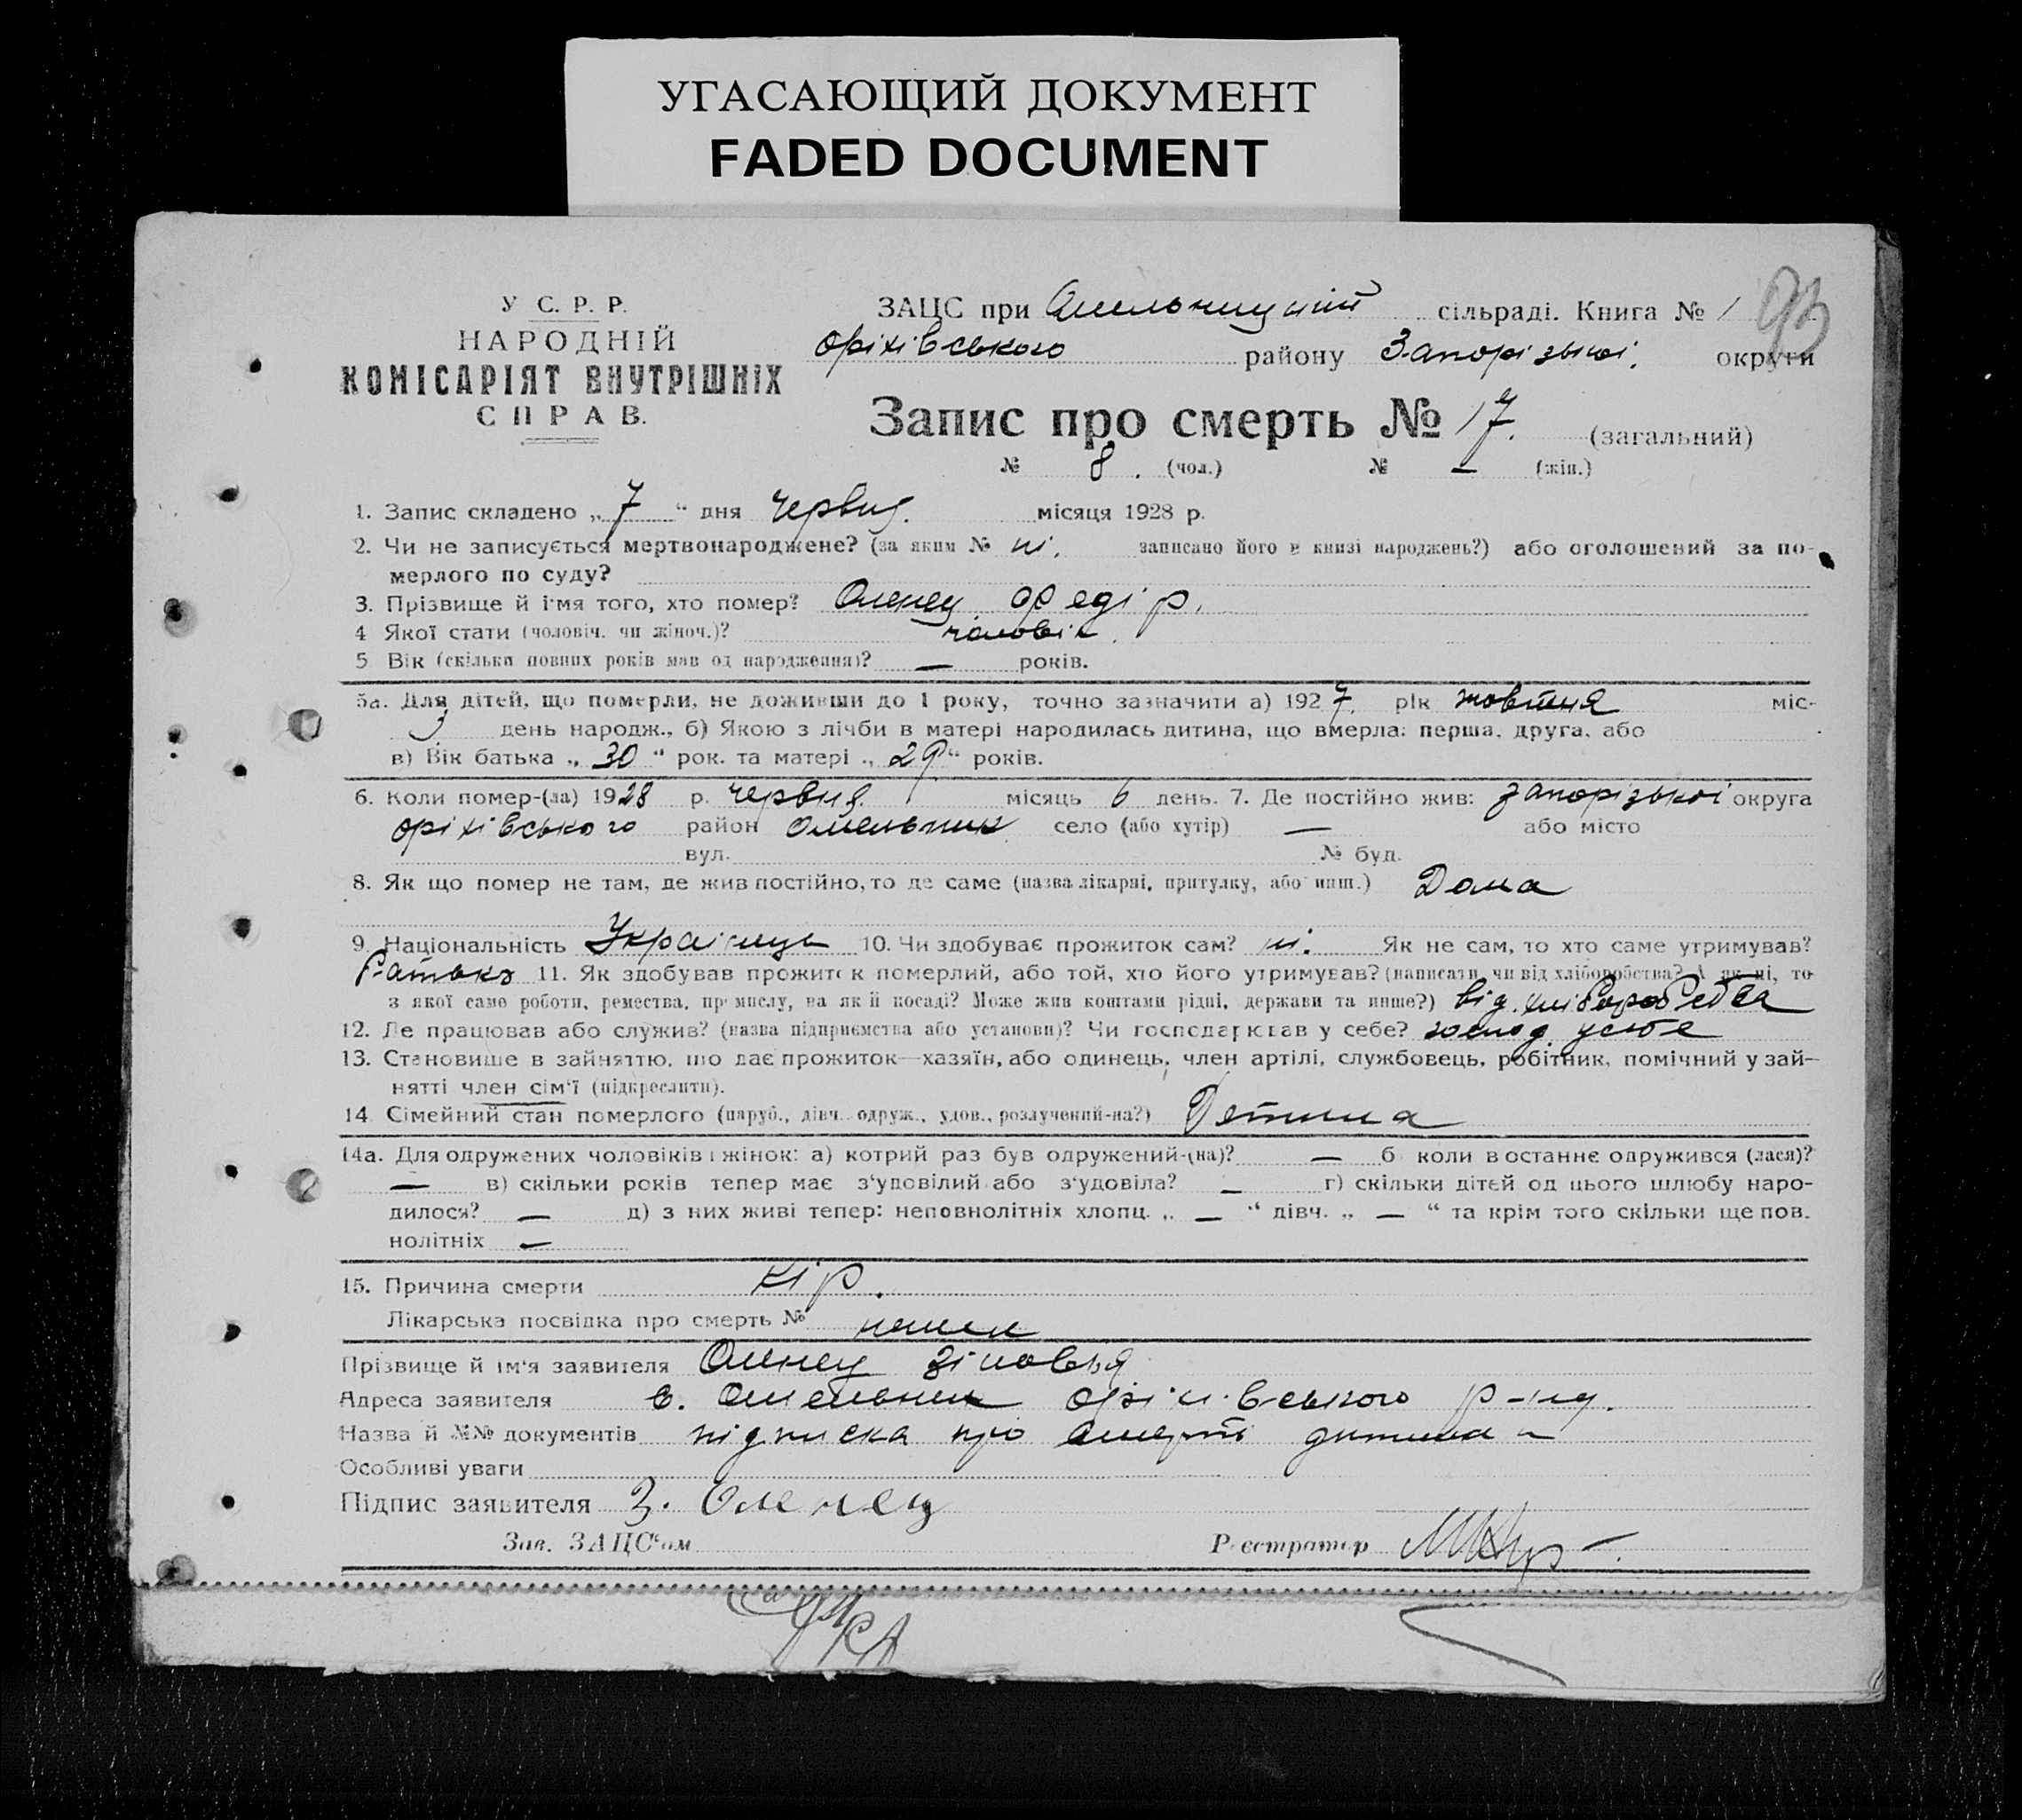 УГАСАЮЩИЙ ДОКУМЕНТ
FADED DOCUMENT
93
У С. Р. Р.
НАРОДНІЙ
КОМІСАРІЯТ ВНУТРІШНІХ
СПРАВ.
ЗАЦС при Омельницькій сільраді. Книга № 1
Оріхівського району Запорізької округи
Запис про смерть № 17. (загальний)
№ 8. (чол.) № — (жін.)
1. Запис складено „ 7 “ дня червня місяця 1928 р.
2. Чи не записується мертвонароджене? (за яким № ні. записано його в книзі народжень?) або оголошений за по-
мерлого по суду?
3. Прізвище й ім'я того, хто помер? Оленец Федір.
4 Якої стати (чоловіч. чи жіноч.)? чоловік.
5 Вік (скільки повних років мав од народження)? — років.
5а. Для дітей, що померли, не доживши до 1 року, точно зазначити а) 1927. рік жовтня міс-
3 день народж., б) Якою з лічби в матері народилась дитина, що вмерла: перша, друга, або
в) Вік батька „ 30 “ рок. та матері „ 29 “ років.
6. Коли помер-(ла) 1928 р. червня місяць 6 день. 7. Де постійно жив: Запорізької округа
Оріхівського район Омельник село (або хутір) — або місто
вул. № буд.
8. Як що помер не там, де жив постійно, то де саме (назва лікарні, притулку, або инш.) Дома
9. Національність Українець 10. Чи здобуває прожиток сам? ні. Як не сам, то хто саме утримував?
Батько 11. Як здобував прожиток померлий, або той, хто його утримував? (написати, чи від хліборобства? А як ні, то
з якої саме роботи, ремества, промислу, на якій посаді? Може жив коштами рідні, держави та инше?) від хліборобства
12. Де працював або служив? (назва підприємства або установи)? Чи господарював у себе? господ. у себе
13. Становище в зайняттю, що дає прожиток—хазяїн, або одинець, член артілі, службовець, робітник, помічний у зай-
нятті член сім'ї (підкреслити).
14 Сімейний стан померлого (паруб., дівч. одруж., удов., розлучений-на?) Детина
14а. Для одружених чоловіків і жінок: а) котрий раз був одружений-(на)? — б коли в останнє одружився (лася)?
— в) скільки років тепер має з'удовілий або з'удовіла? — г) скільки дітей од цього шлюбу наро-
дилося? — д) з них живі тепер: неповнолітніх хлопц. „ — “ дівч. „ — “ та крім того скільки ще пов.
нолітніх —
15. Причина смерти кір.
Лікарська посвідка про смерть № немає
Прізвище й ім'я заявителя Оленец Зіновья
Адреса заявителя с. Омельник Оріхівського р-ну.
Назва й №№ документів підписка про смерть дитина
Особливі уваги
Підпис заявителя З. Оленец
Зав. ЗАЦС'ом Реєстратор